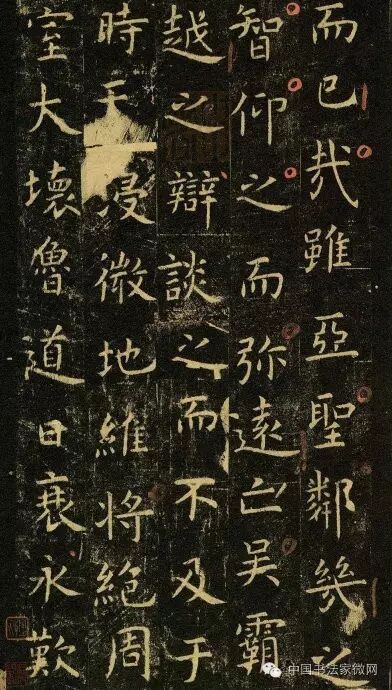 而已哉雖亞聖鄰幾之
智仰之而弥遠亡吴霸
越之辯談之而不及于
時天浸微地維將絕周
室大壞魯道日衰永歎
中国书法家微网